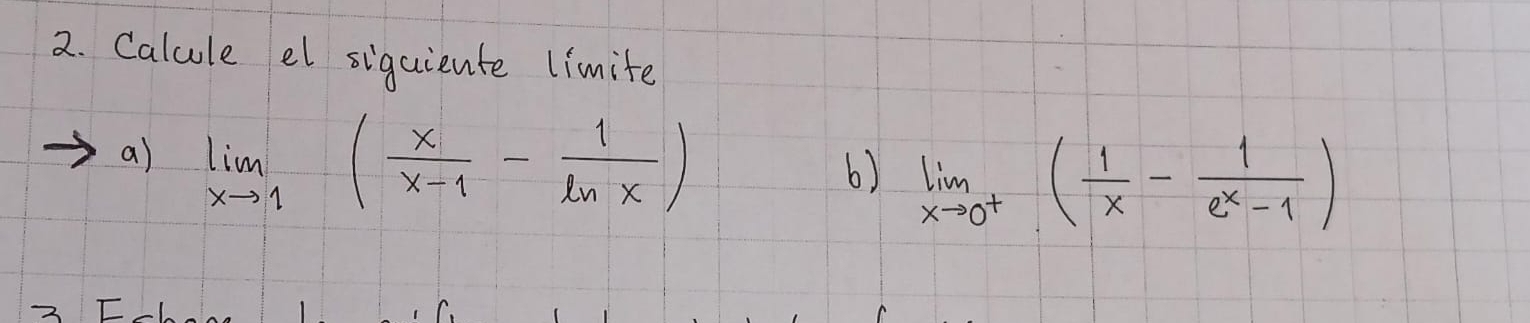 2. Calcule el siguiente límite
→ a) lim x→1 ( x/(x-1) - 1/(ln x) ) b) lim x→0⁺ ( 1/x - 1/(eˣ-1) )
3